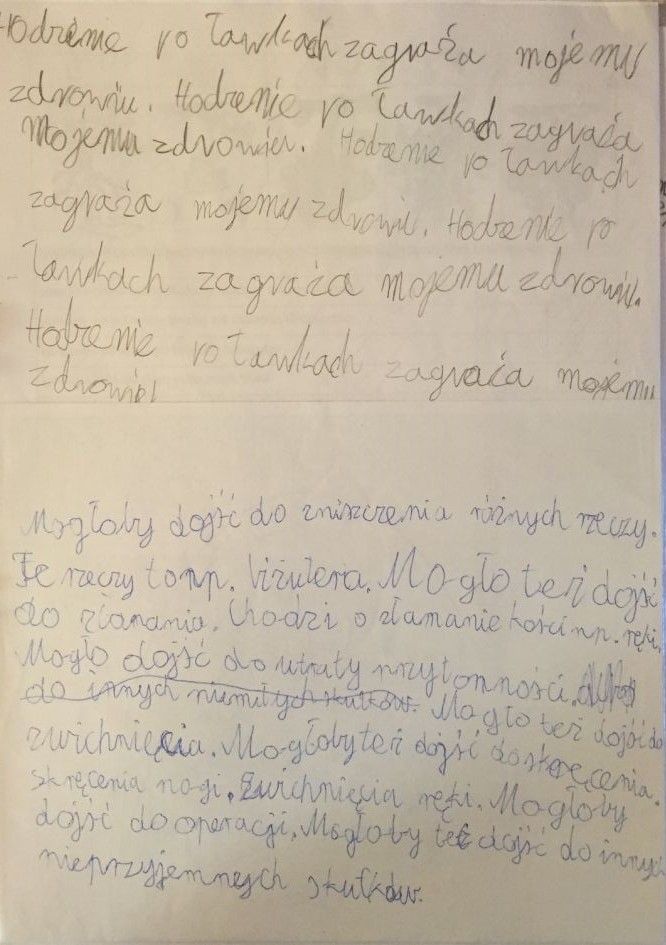 Hodzenie po ławkach zagraża mojemu
zdrowiu. Hodzenie po ławkach zagraża
mojemu zdrowiu. Hodzenie po ławkach
zagraża mojemu zdrowiu. Hodzenie po
ławkach zagraża mojemu zdrowiu.
Hodzenie po ławkach zagraża mojemu
zdrowiu
Mogłoby dojść do zniszczenia różnych rzeczy.
Te rzeczy to np. biżuteria. Mogło też dojść
do złamania. Chodzi o złamanie kości np. ręki.
Mogło dojść do utraty przytomności.
do innych niemiłych skutków. Mogło też dojść do
zwichnięcia. Mogłoby też dojść do skręcenia.
skręcenia nogi. Zwichnięcia ręki. Mogłoby
dojść do operacji. Mogłoby też dojść do innych
nieprzyjemnych skutków.